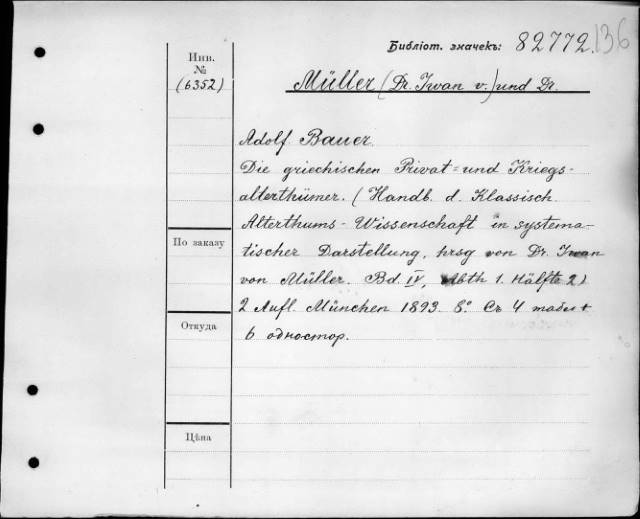 Библіот. значекъ: 82772. 136
Инв.
№
(6352)
Müller (Dr. Iwan v.) und Dr.
Adolf Bauer.
Die griechischen Privat= und Kriegs-
alterthümer. (Handb. d. Klassisch.
Alterthums-Wissenschaft in systema-
tischer Darstellung, hrsg von Dr. Iwan
von Müller. Bd. IV, Abth 1. Hälfte 2)
2 Aufl. München 1893. 8.° Съ 4 табл +
6 одностор.
По заказу
Откуда
Цѣна